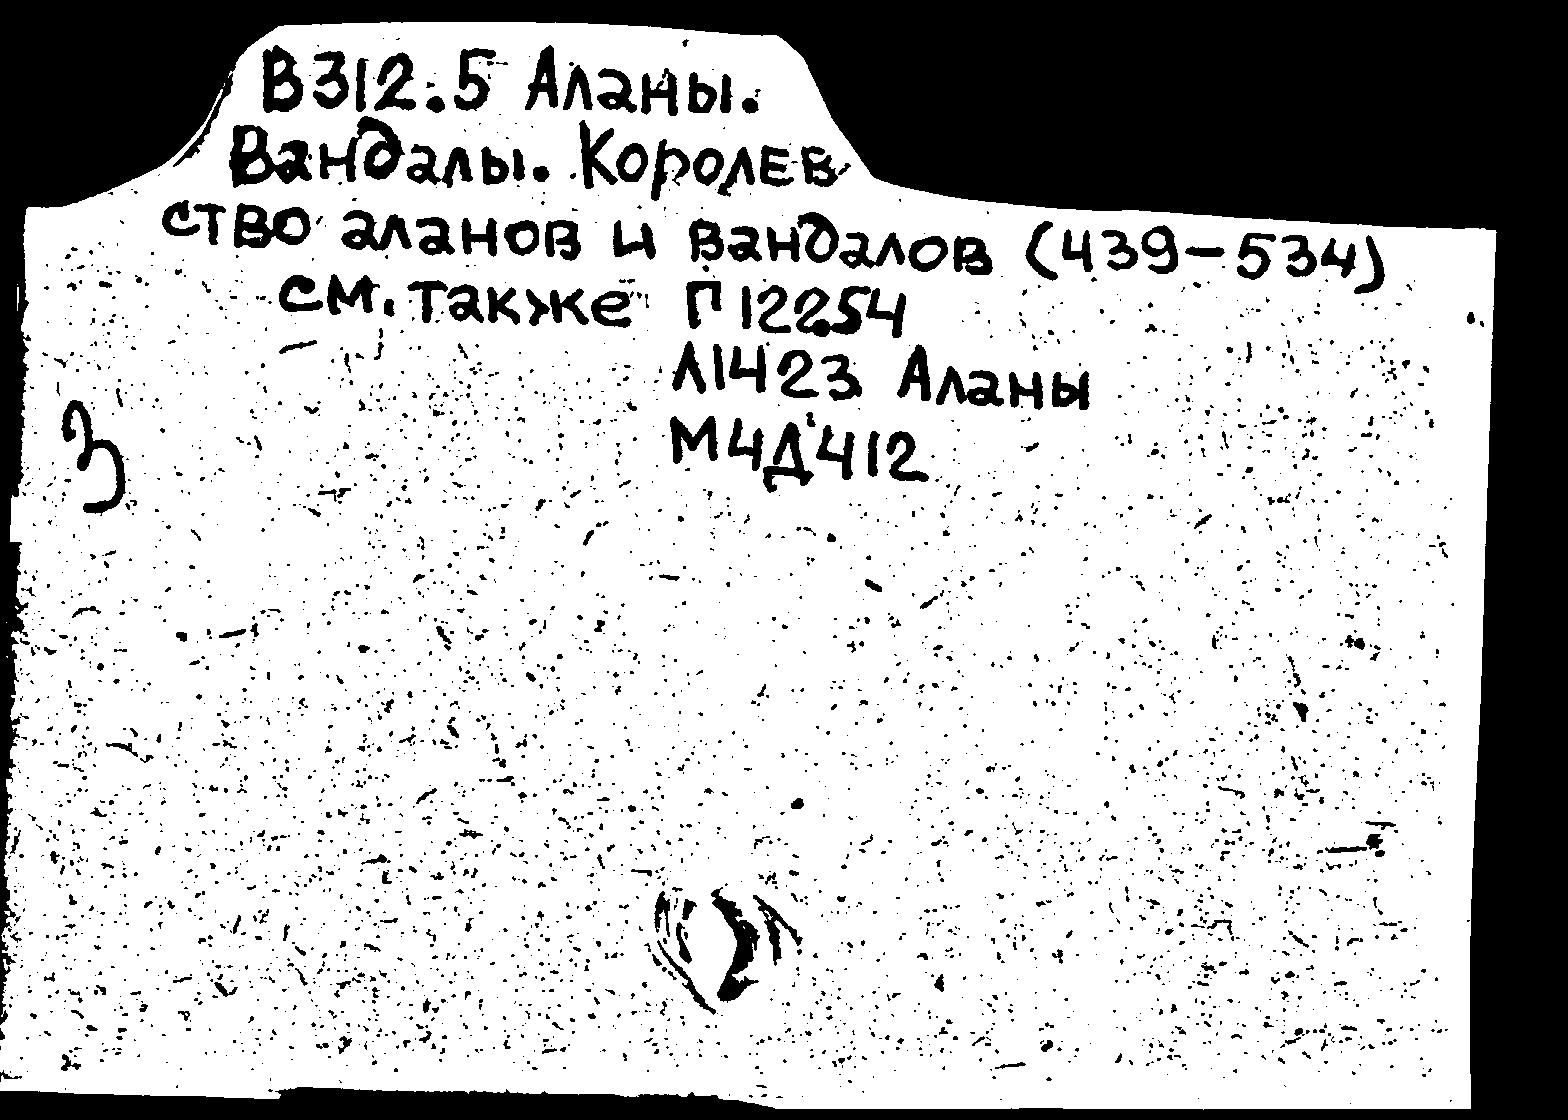 В312.5 Аланы.
Вандалы. Королев
ство аланов и вандалов (439-534)
см. также Г122.54
Л1423 Аланы
М4Д'412
З